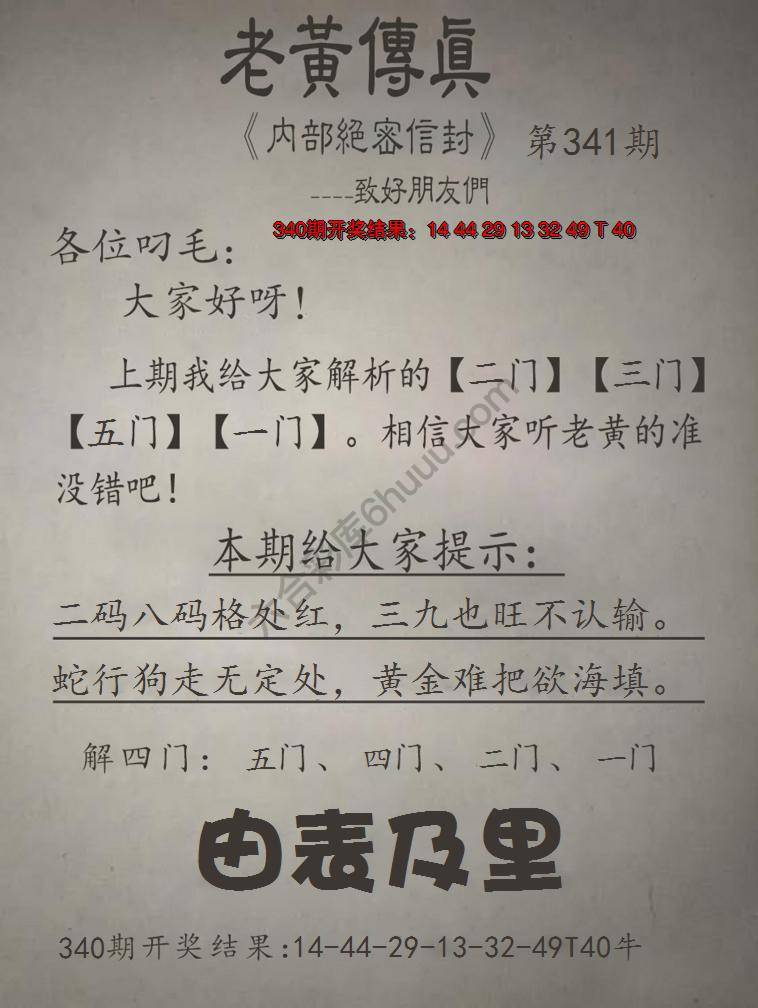 老黃傳真
《内部絕密信封》 第341期
----致好朋友們
340期开奖结果：14 44 29 13 32 49 T 40
各位叼毛：
大家好呀！
上期我给大家解析的【二门】【三门】
【五门】【一门】。相信大家听老黄的准
没错吧！
本期给大家提示：
二码八码格处红，三九也旺不认输。
蛇行狗走无定处，黄金难把欲海填。
解四门： 五门、 四门、 二门、 一门
由表及里
340期开奖结果:14-44-29-13-32-49T40牛
六合彩库6huuu.com